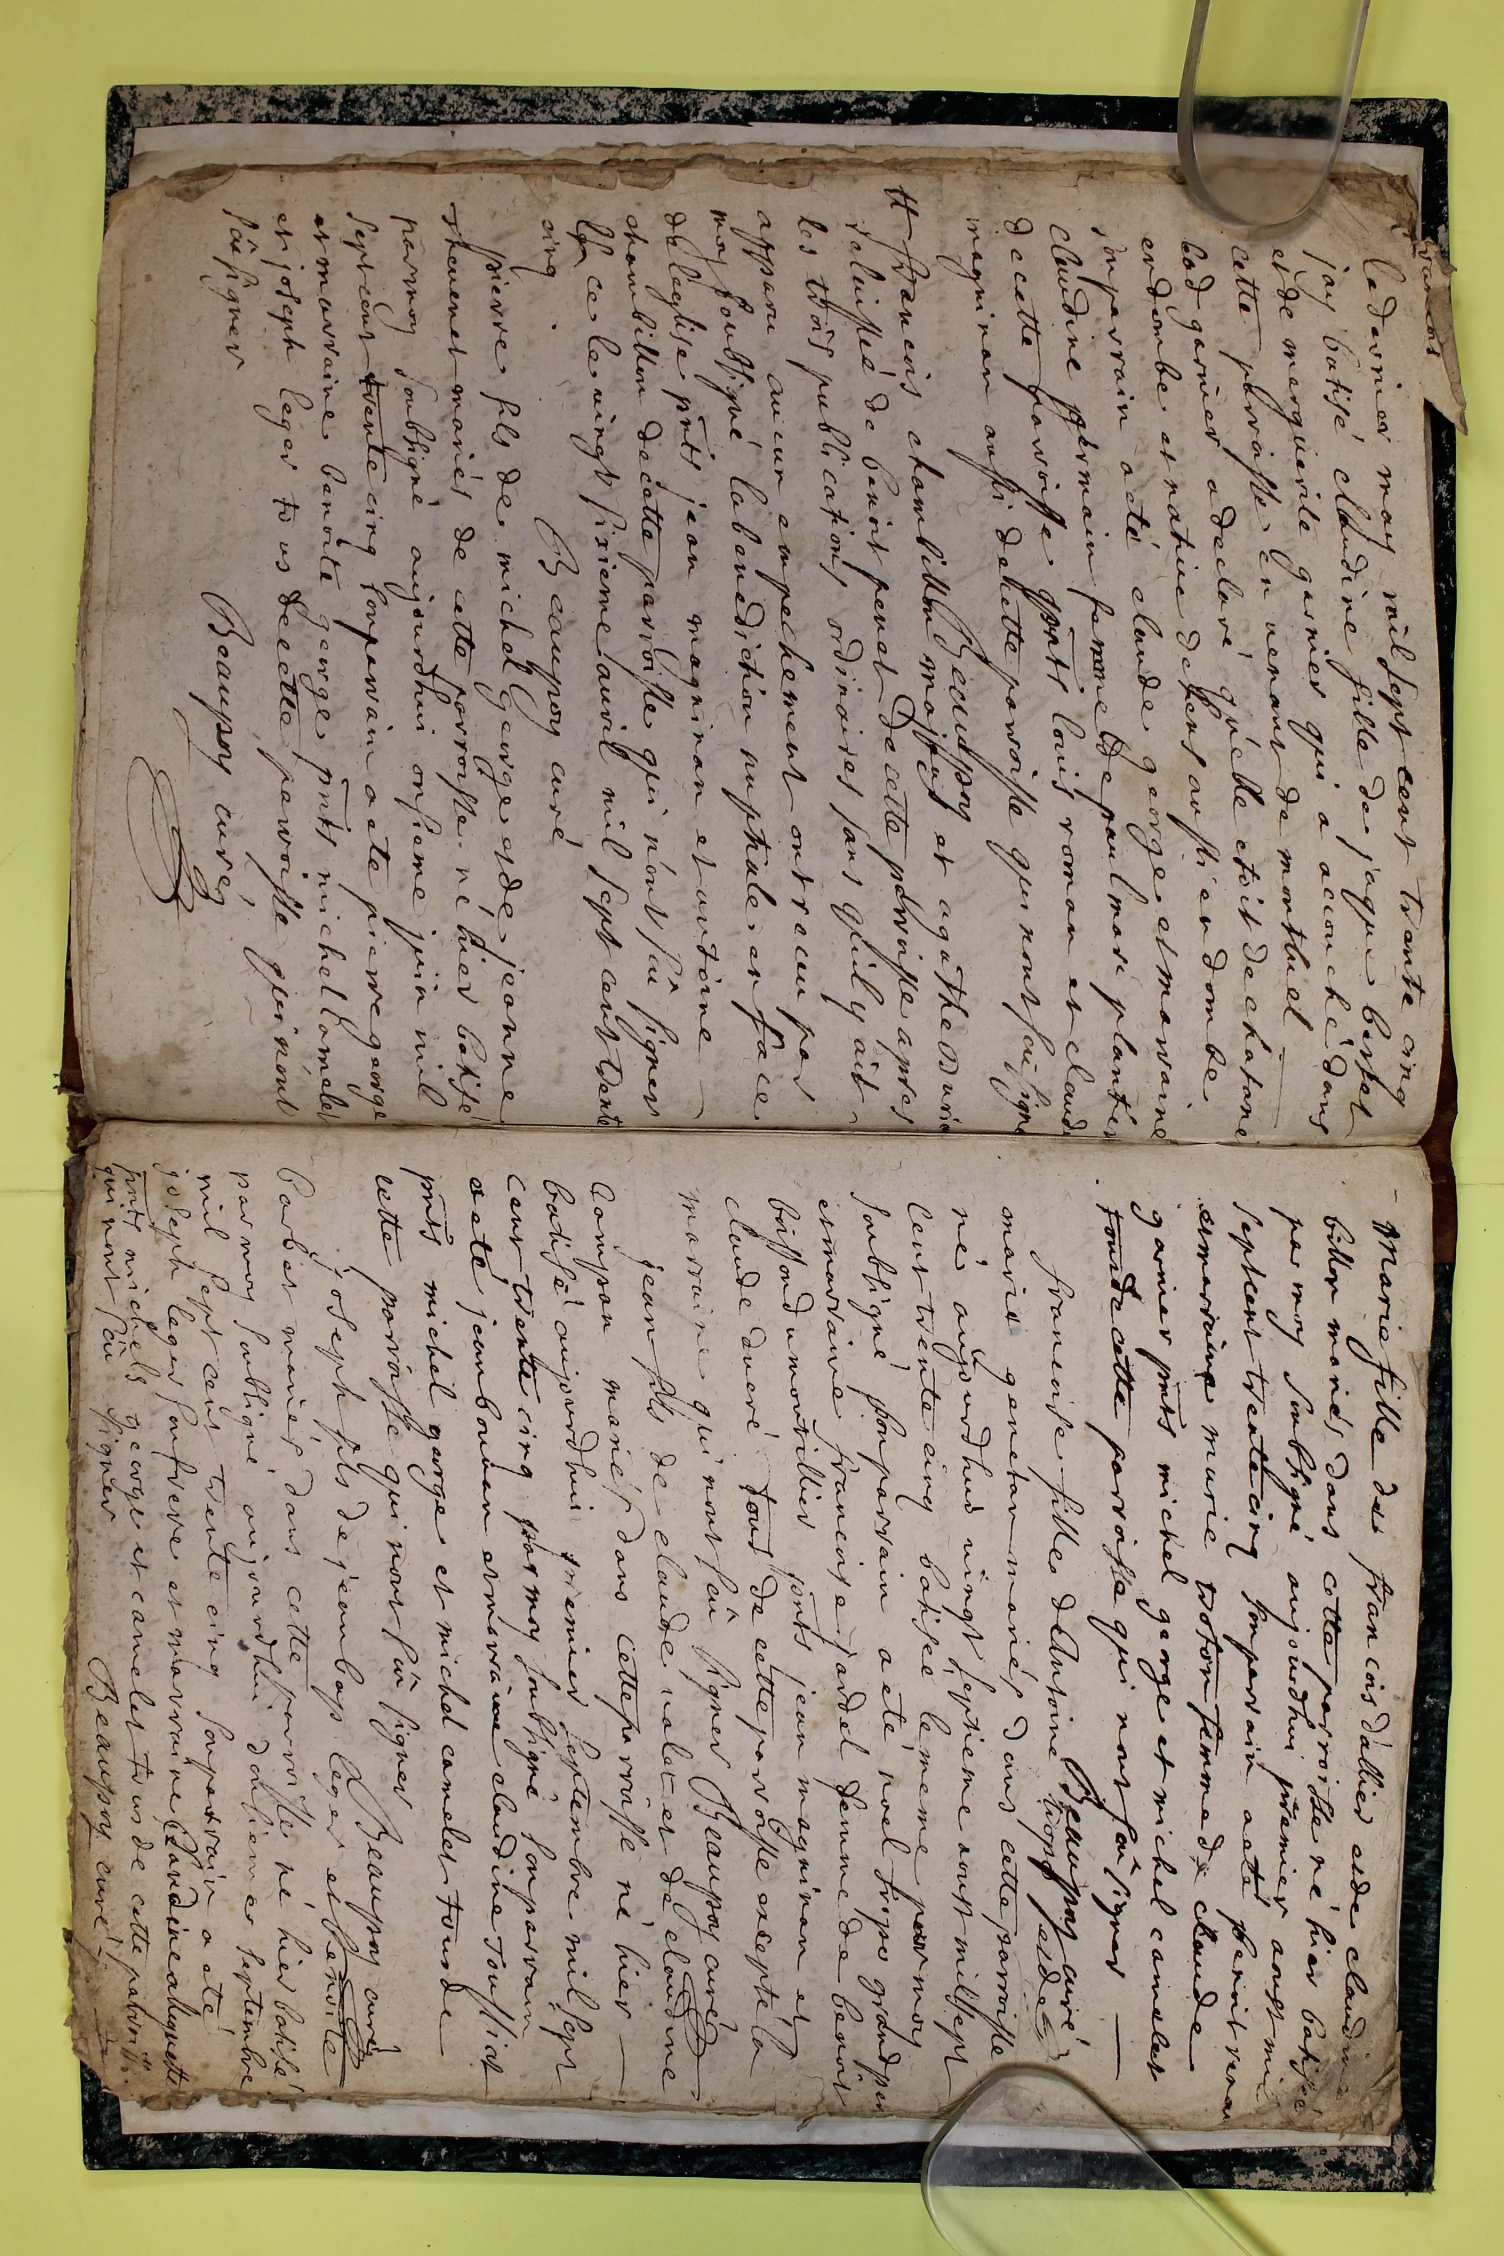 le dernier may mil sept cent trante cinq
jay batisé claudine fille de jaque bertet
et de merguerite garnier qui a accouché dans
cette parroisse en venant de montluel
lad garnier a declaré quelle etoit de chatane
en dombe et native de lent aussi en dombe
son parrain a eté claude george et marraine
claudine germain femme de paul mari plantier
de cette parroisse pnts louis roman et claude
magninon aussi de cette parroisse qui nont scu signe
Beaupoy
francois chambillon majeur et agathe
delaissée de benoit penet de cette parroisse apres
les trois publications ordinaires sans quil y ait
apparu aucun empechement ont receu par
moy soubsigné la benediction nuptiale en face
de leglise pnts jean magninon et antoine
chambillon de cette parroisse qui nont scu signer
ce le vingt sixieme avril mil sept cent trente
cinq
Beaupoy curé
pierre fils de michel george et de jeanne
thevenet mariés de cette parroisse né hier batisé
par moy soubsigné aujourdhui onsieme juin mil
sept cent trente cinq son parrain a ete pierre george
et marraine benoite george pnts michel camelet
et joseph leger tous de cette parroisse qui nont
scu signer
Beaupoy curé
Marie fille de francois dallier et de claudine
billon mariés dans cette parroisse né hier batisée
par moy soubsigné aujourdhui premier aoust mil
sept cent trente cinq son parrain a eté benoit
et marraine marie troton femme de claude
garnier pnts michel george et michel camelet
tous de cette parroisse qui nont scu signer
Beaupoy curé
francoise fille de Antoine et de
marie genetan mariés dans cette parroisse
né aujourdhui vingt septieme aoust mil sept
cent trente cinq batisée le meme par moy
soubsigné son parrain a eté noel fripo grand per
et marraine francoise jardel femme de benoit
boisson du montellier pnts jean magninon et
claude dueré tous de cette parroisse excepté la
marraine qui nont scu signer Beaupoy curé
jean fils de claude valet et de claudine
compan mariés dans cette parroisse né hier
batisé aujourdhui premier septembre mil sept
cent trente cinq par moy soubsigné son parrain
a eté jean bouvan et marraine claudine toussiat
pnts michel george et michel camelet tous de
cette parroisse qui nont scu signer
Beaupoy curé
joseph fils de jean bap leger et benoite
barbet mariés dans cette parroisse né hier batisé
par moy soubsigné aujourdhui dousieme septembre
mil sept cent trente cinq son parrain a eté
joseph leger son frere et marraine claudine
pnts michels george et camelet tous de cette parroisse
qui nont scu signer Beaupoy curé